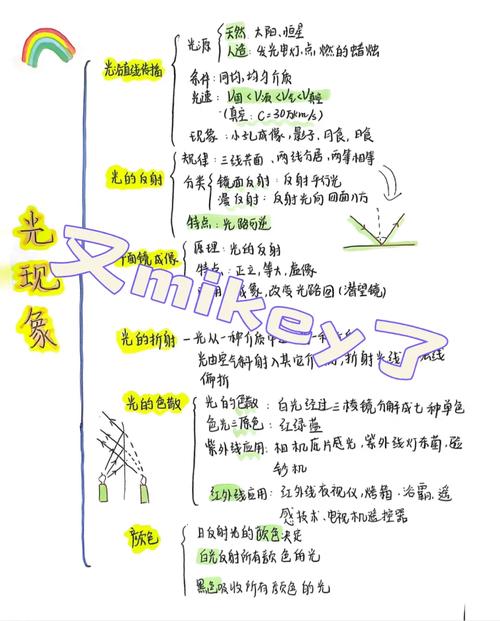 光现象
光沿直线传播
光源
天然:太阳、恒星
人造:发光电灯,点燃的蜡烛
条件:同均,均匀介质
光速:V固<V液<V气<V真空
(真空:C=30万km/s)
现象:小孔成像,影子,月食,日食
光的反射
规律:三线共面、两线分居,两等相等
分类
镜面反射:反射平行光
漫反射:反射光向四面八方
特点:光路可逆
平面镜成像
原理:光的反射
特点:正立,等大,虚像
成像,改变光路图(潜望镜)
光的折射
光从一种介质
光由空气斜射入其它介,折射光线
偏折
光的色散
光的色散:白光经过三棱镜分解成七种单色
色光三原色:红绿蓝
紫外线应用:相机底片感光,紫外线灯杀菌,验
钞机
红外线应用:红外线夜视仪,烤箱,浴霸,遥
感技术、电视机遥控器
颜色
由反射光的颜色决定
白光反射所有颜色的光
黑色吸收所有颜色的光
又mikey了